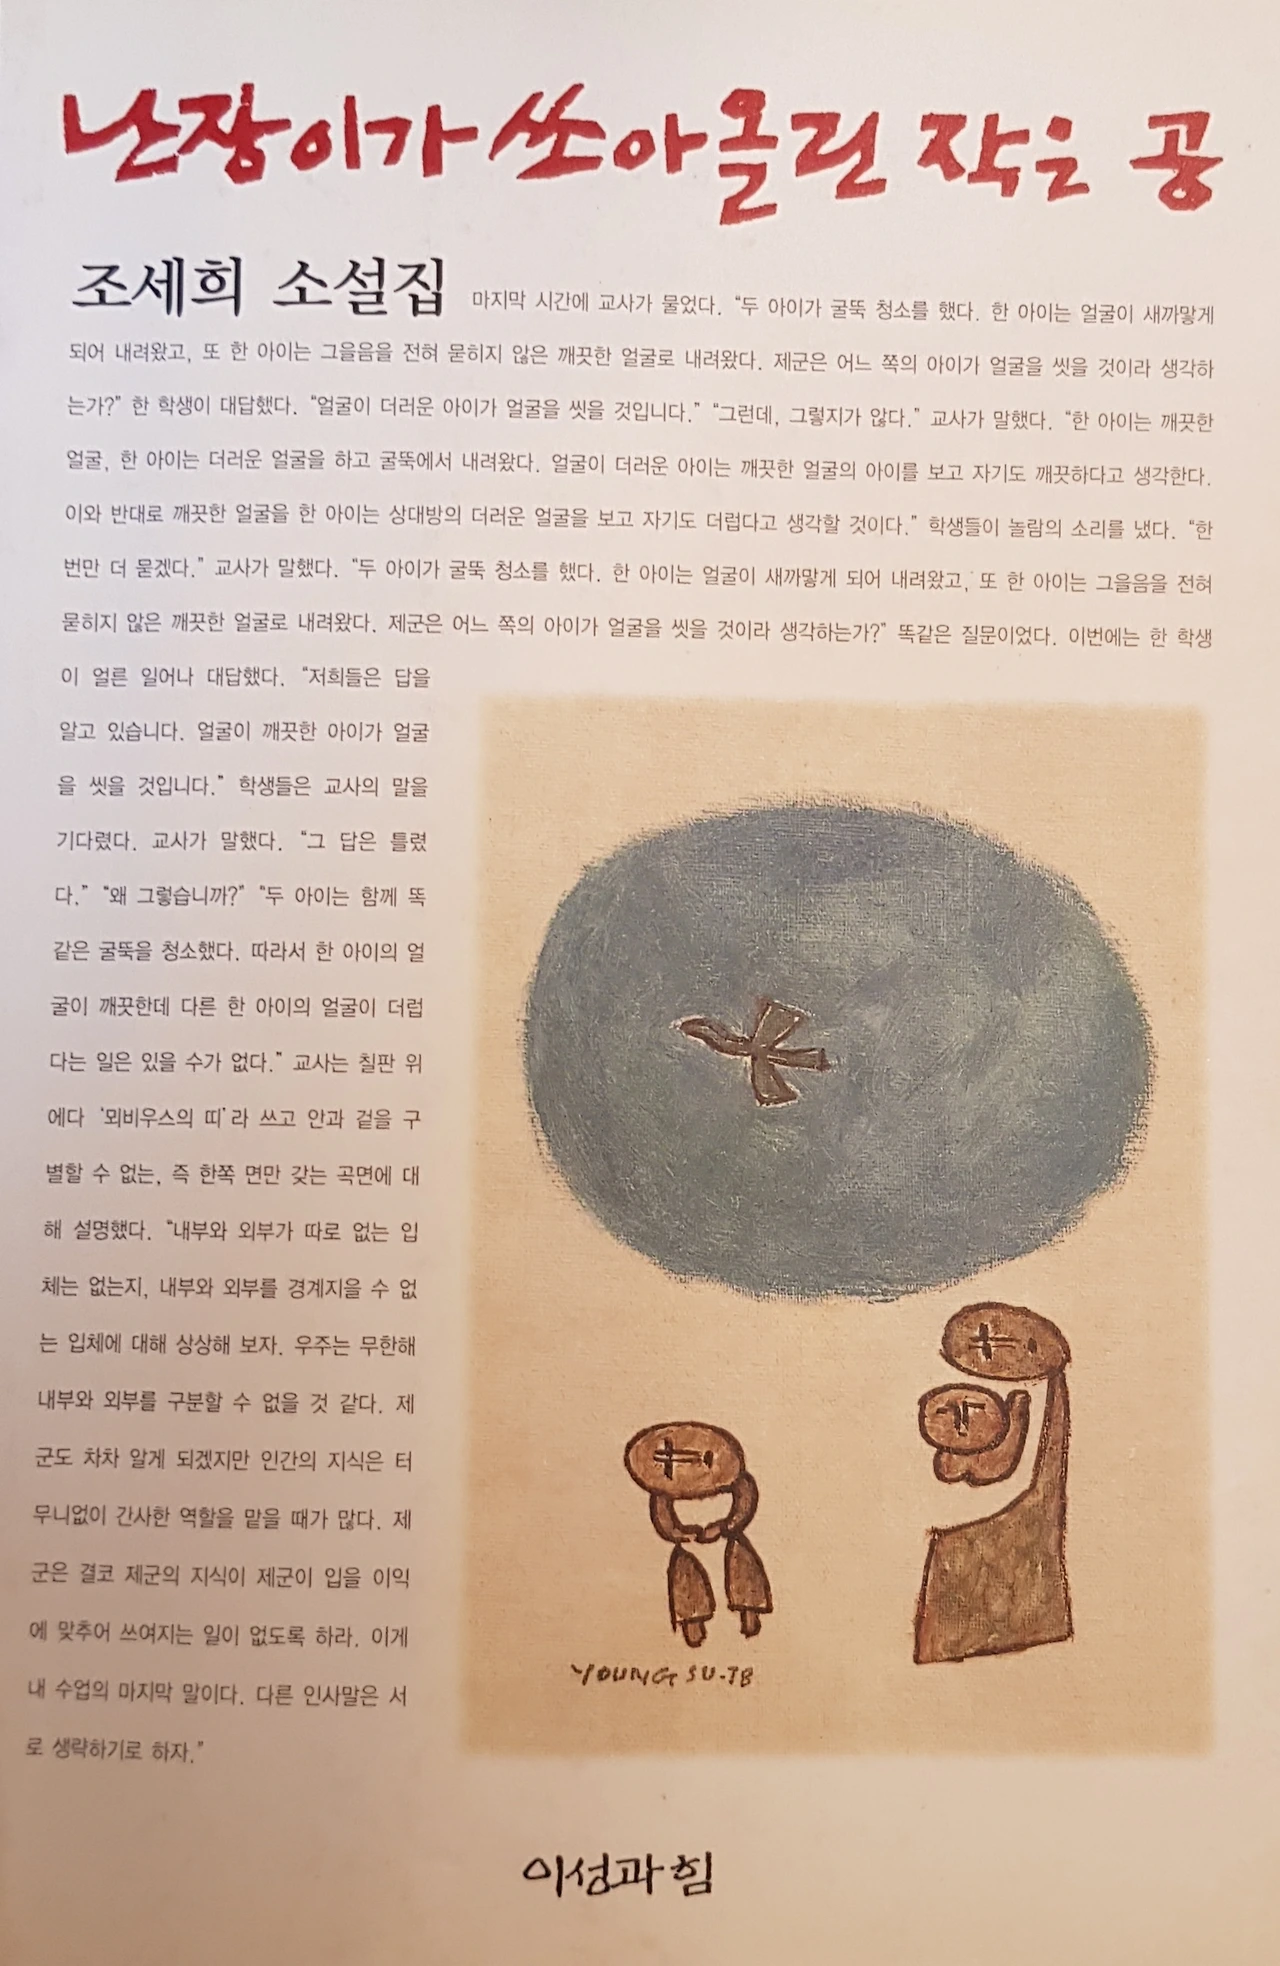 난장이가 쏘아올린 작은 공
조세희 소설집 마지막 시간에 교사가 물었다. “두 아이가 굴뚝 청소를 했다. 한 아이는 얼굴이 새까맣게
되어 내려왔고, 또 한 아이는 그을음을 전혀 묻히지 않은 깨끗한 얼굴로 내려왔다. 제군은 어느 쪽의 아이가 얼굴을 씻을 것이라 생각하
는가?” 한 학생이 대답했다. “얼굴이 더러운 아이가 얼굴을 씻을 것입니다.” “그런데, 그렇지가 않다.” 교사가 말했다. “한 아이는 깨끗한
얼굴, 한 아이는 더러운 얼굴을 하고 굴뚝에서 내려왔다. 얼굴이 더러운 아이는 깨끗한 얼굴의 아이를 보고 자기도 깨끗하다고 생각한다.
이와 반대로 깨끗한 얼굴을 한 아이는 상대방의 더러운 얼굴을 보고 자기도 더럽다고 생각할 것이다.” 학생들이 놀람의 소리를 냈다. “한
번만 더 묻겠다.” 교사가 말했다. “두 아이가 굴뚝 청소를 했다. 한 아이는 얼굴이 새까맣게 되어 내려왔고, 또 한 아이는 그을음을 전혀
묻히지 않은 깨끗한 얼굴로 내려왔다. 제군은 어느 쪽의 아이가 얼굴을 씻을 것이라 생각하는가?” 똑같은 질문이었다. 이번에는 한 학생
이 얼른 일어나 대답했다. “저희들은 답을
알고 있습니다. 얼굴이 깨끗한 아이가 얼굴
을 씻을 것입니다.” 학생들은 교사의 말을
기다렸다. 교사가 말했다. “그 답은 틀렸
다.” “왜 그렇습니까?” “두 아이는 함께 똑
같은 굴뚝을 청소했다. 따라서 한 아이의 얼
굴이 깨끗한데 다른 한 아이의 얼굴이 더럽
다는 일은 있을 수가 없다.” 교사는 칠판 위
에다 ‘뫼비우스의 띠’라 쓰고 안과 겉을 구
별할 수 없는, 즉 한쪽 면만 갖는 곡면에 대
해 설명했다. “내부와 외부가 따로 없는 입
체는 없는지, 내부와 외부를 경계지을 수 없
는 입체에 대해 상상해 보자. 우주는 무한해
내부와 외부를 구분할 수 없을 것 같다. 제
군도 차차 알게 되겠지만 인간의 지식은 터
무니없이 간사한 역할을 맡을 때가 많다. 제
군은 결코 제군의 지식이 제군이 입을 이익
에 맞추어 쓰여지는 일이 없도록 하라. 이게
내 수업의 마지막 말이다. 다른 인사말은 서
로 생략하기로 하자.”
YOUNG SU-JB
이성과 힘